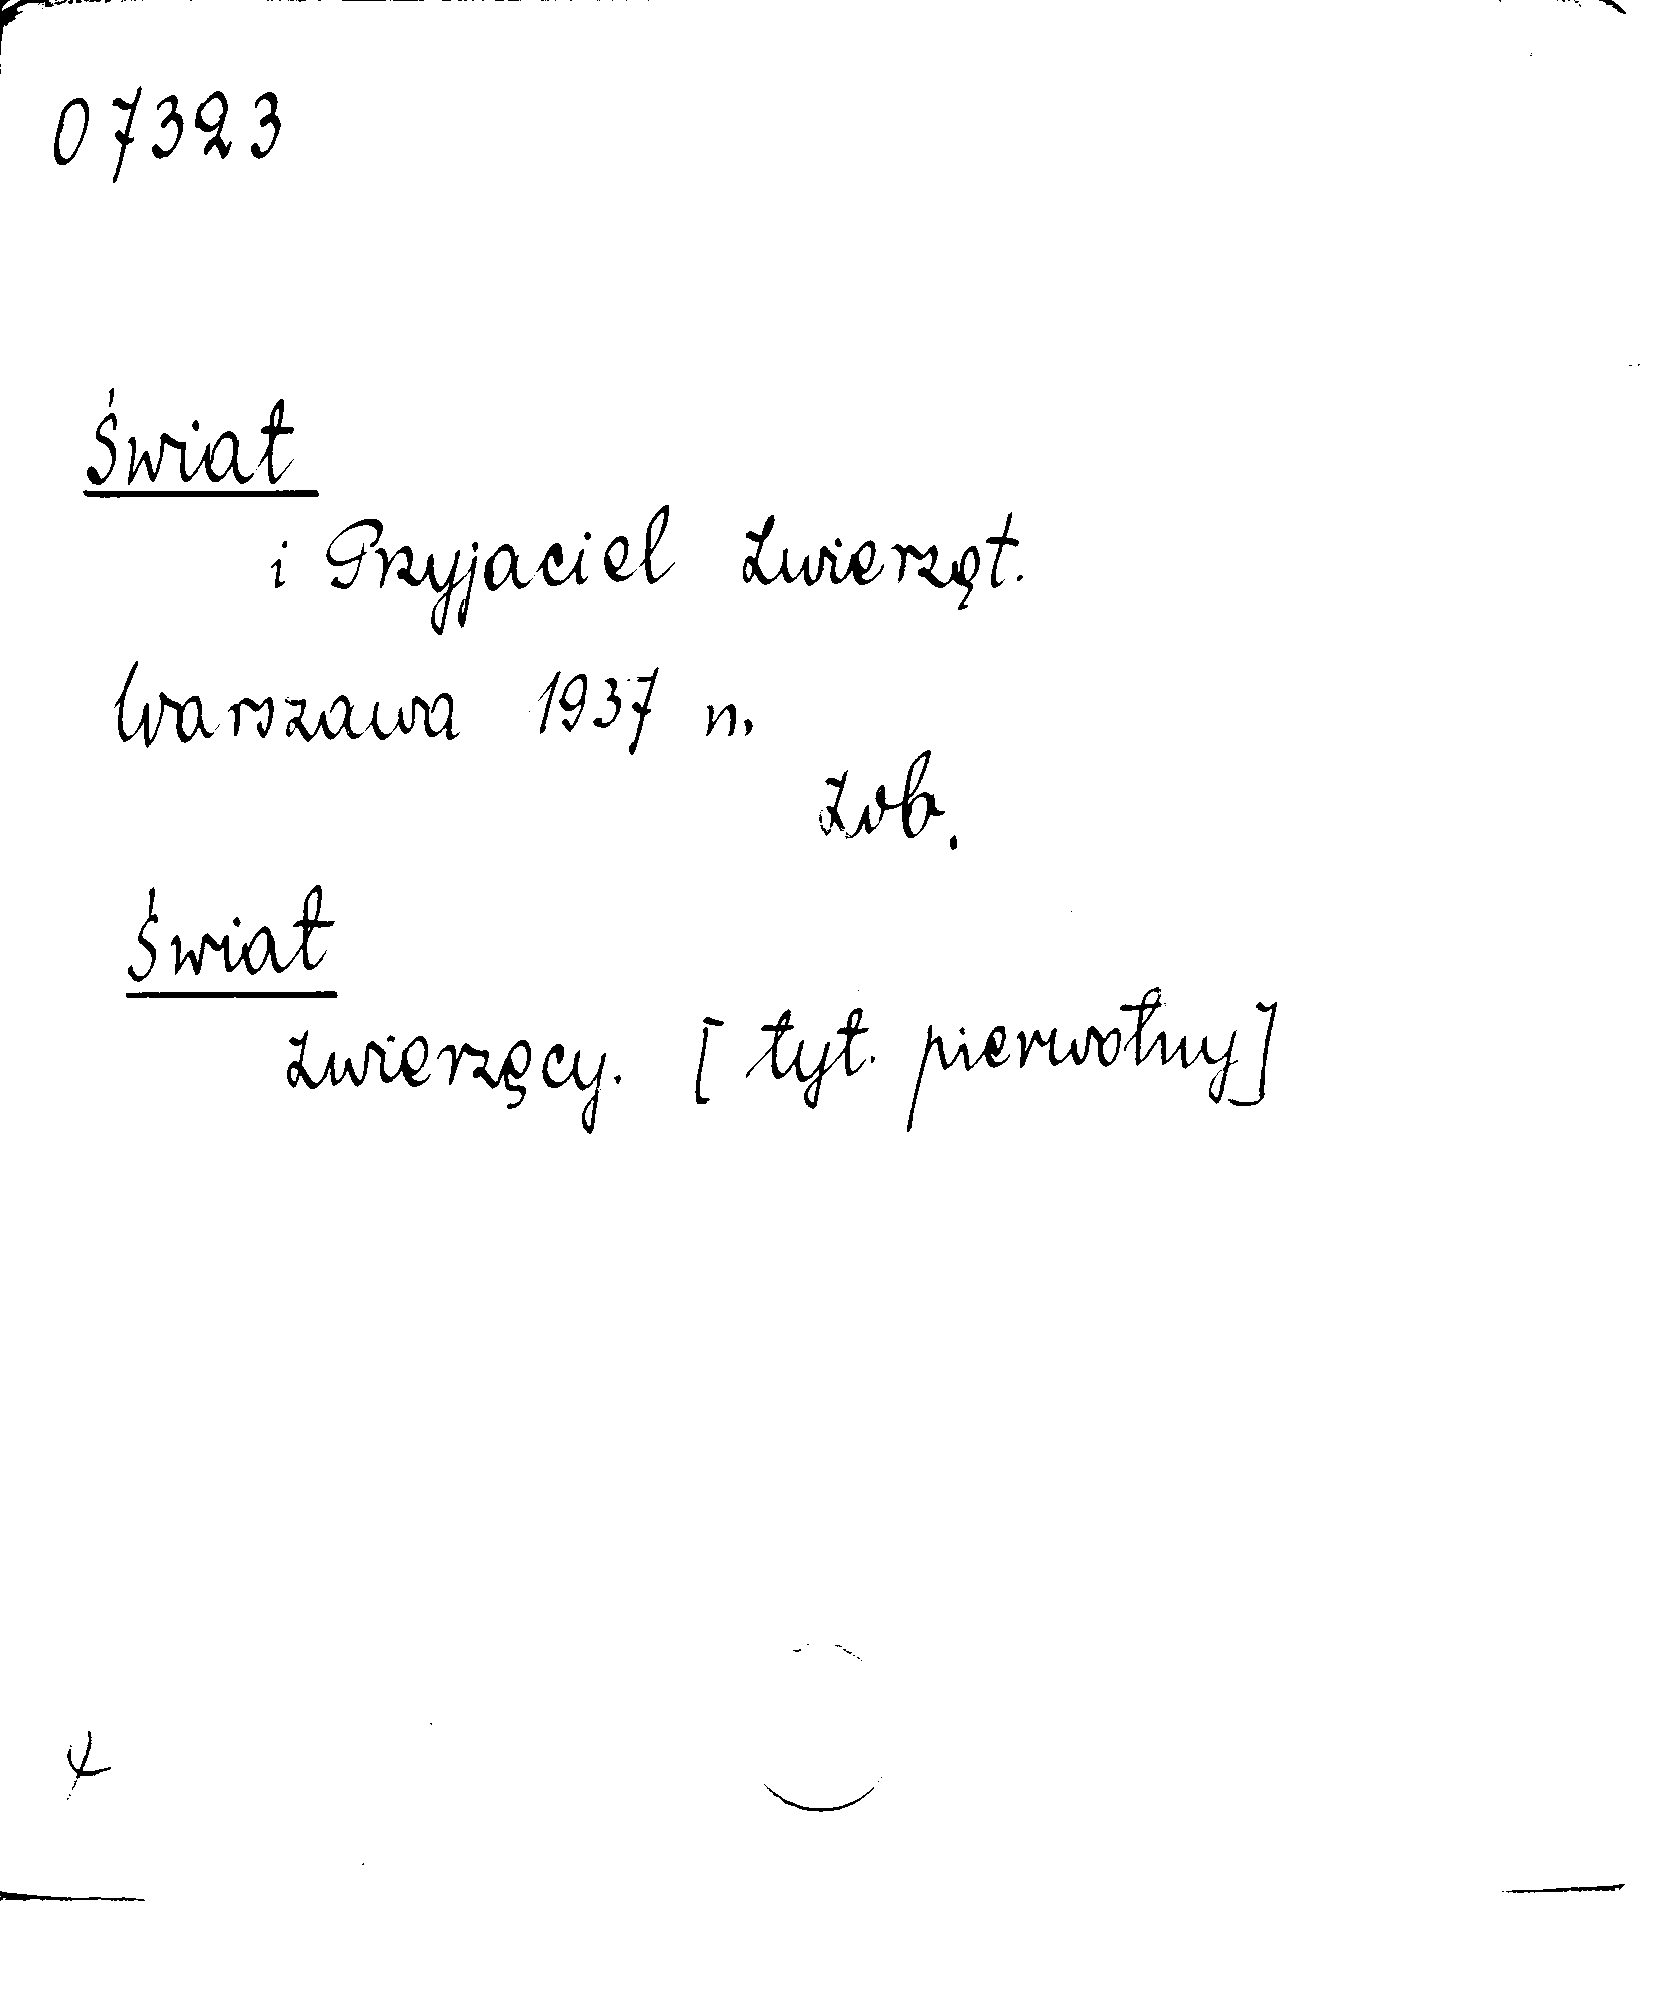 07323
Świat
i Przyjaciel Zwierzęt.
Warszawa 1937 n.
Zob.
Świat
Zwierzęcy. [tyt. pierwotny]